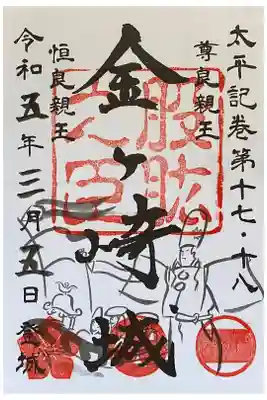 太平記巻第十七・十八
尊良親王
金ヶ崎城
股肱之臣
恒良親王
令和五年三月五日登城